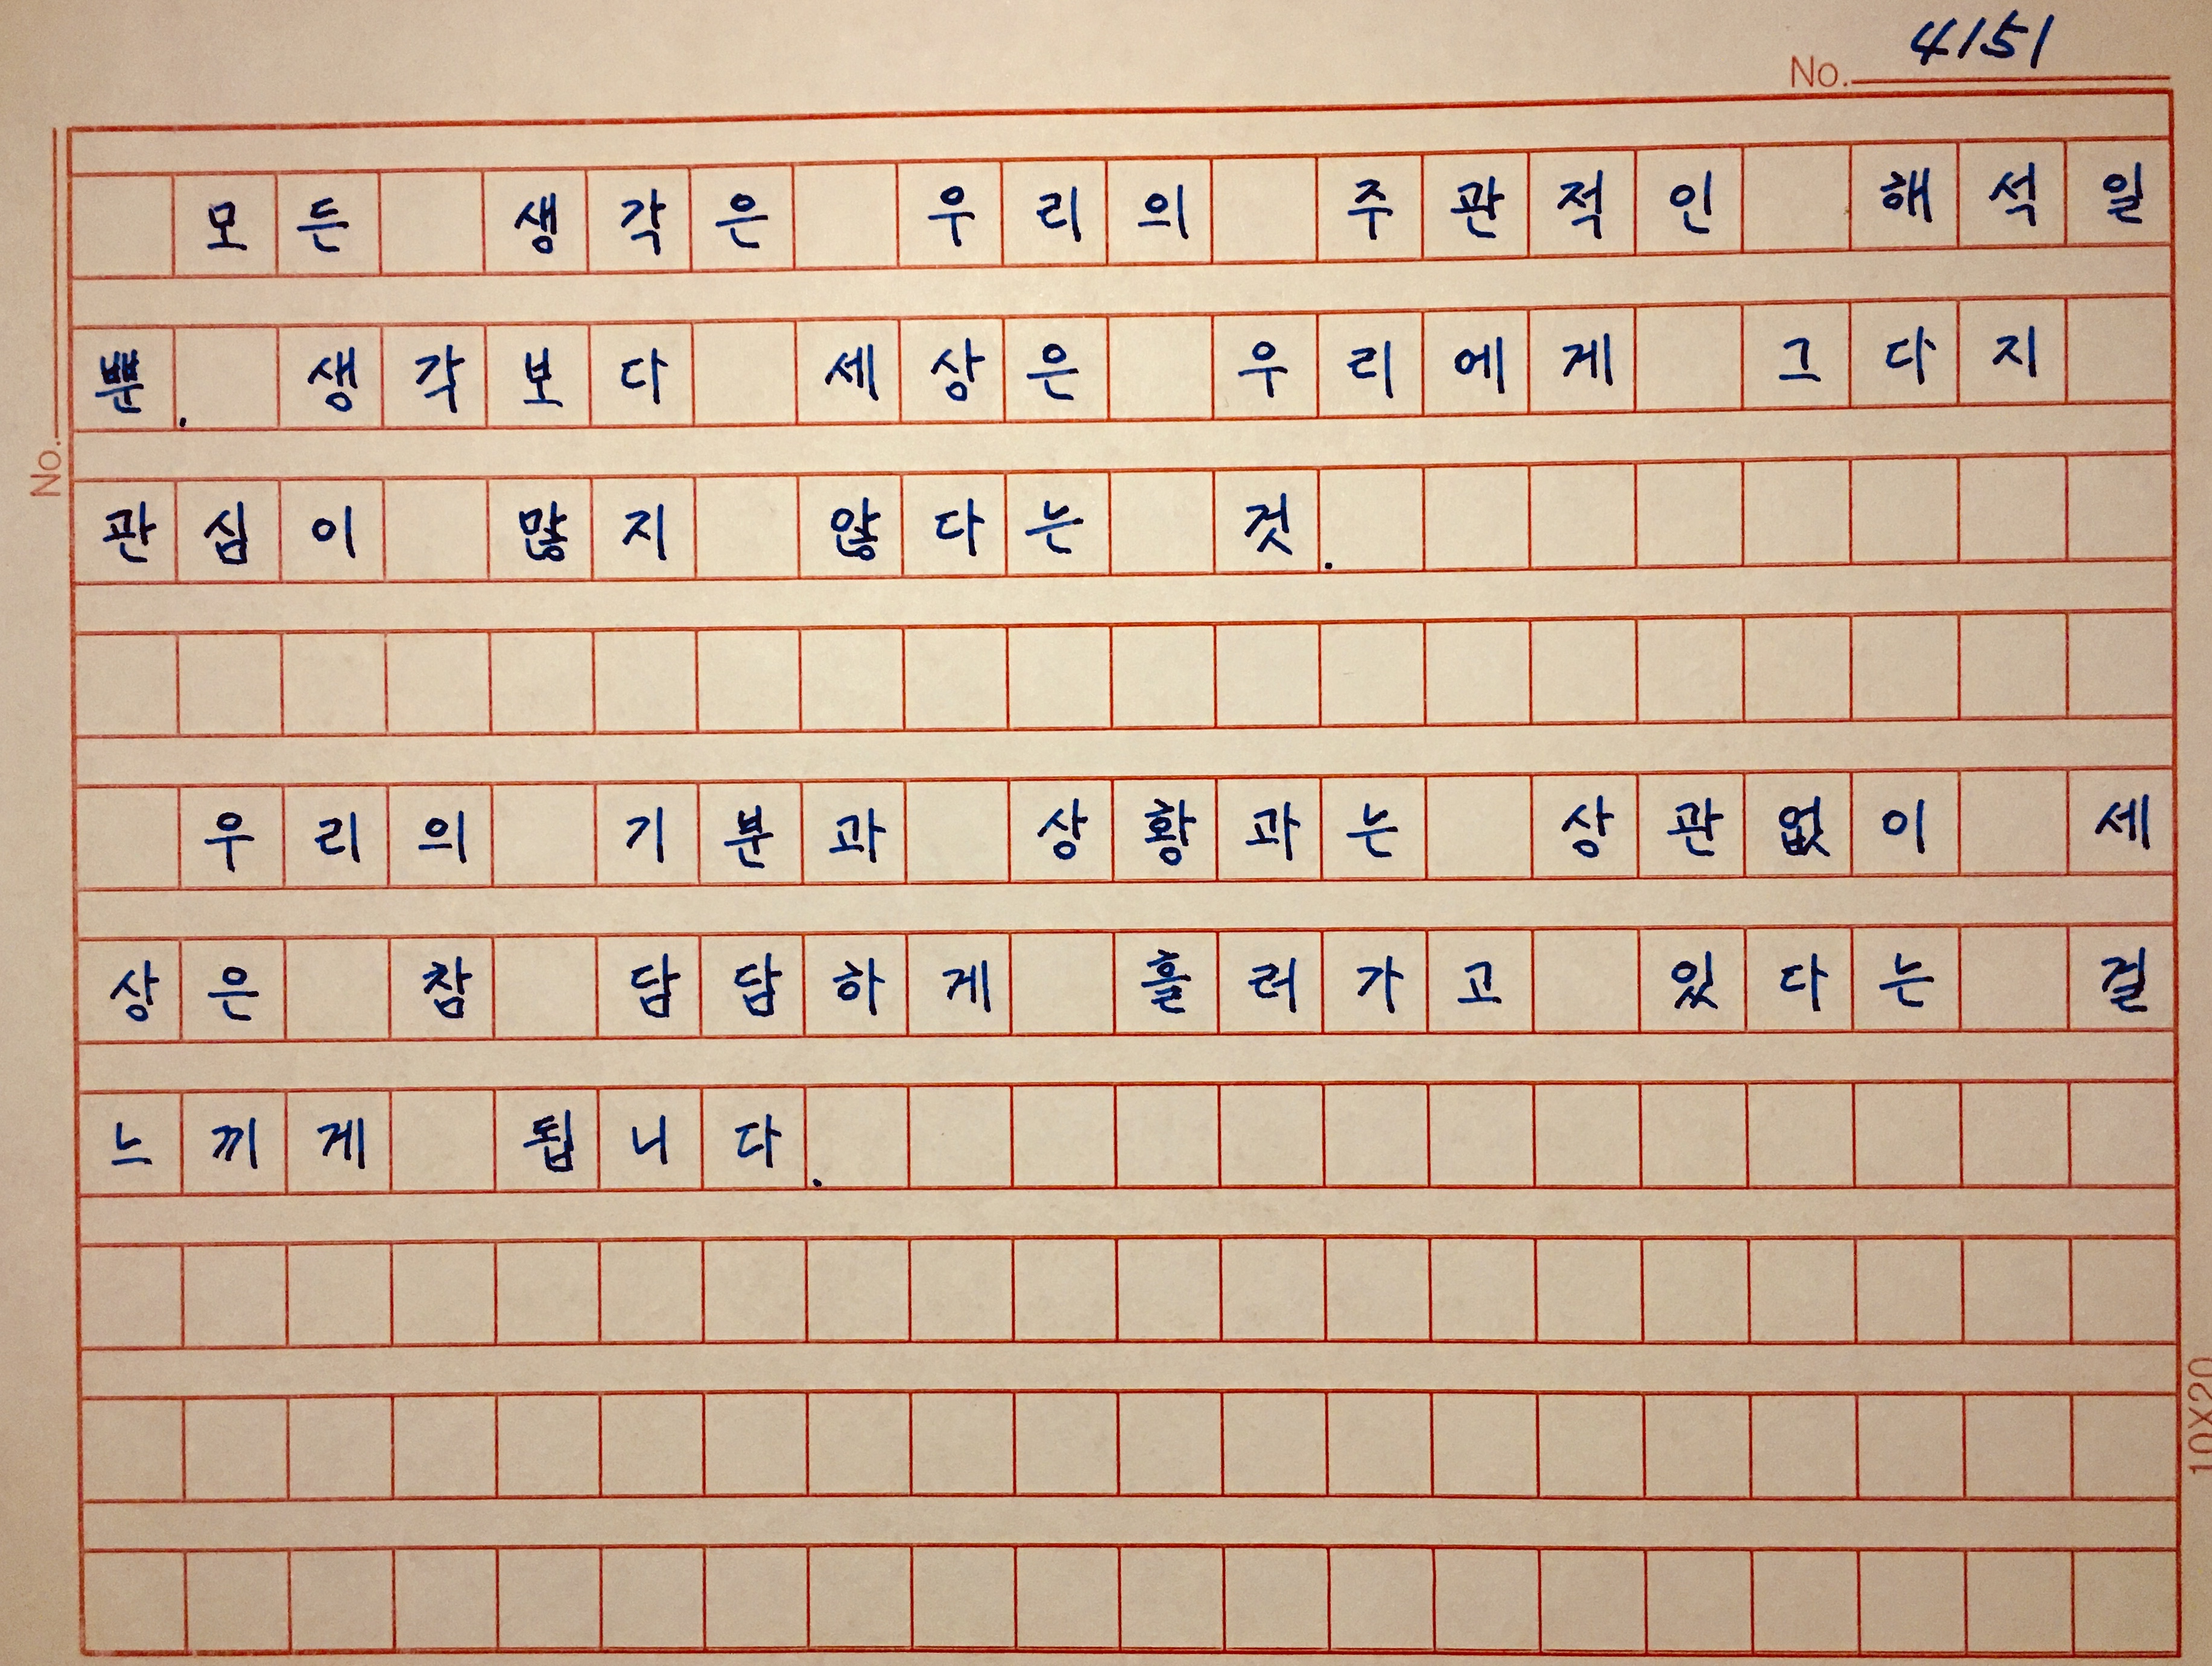 No. 4151
모든 생각은 우리의 주관적인 해석일
뿐. 생각보다 세상은 우리에게 그다지
No.
관심이 많지 않다는 것.
우리의 기분과 상황과는 상관없이 세
상은 참 담담하게 흘러가고 있다는 걸
느끼게 됩니다.
10X20